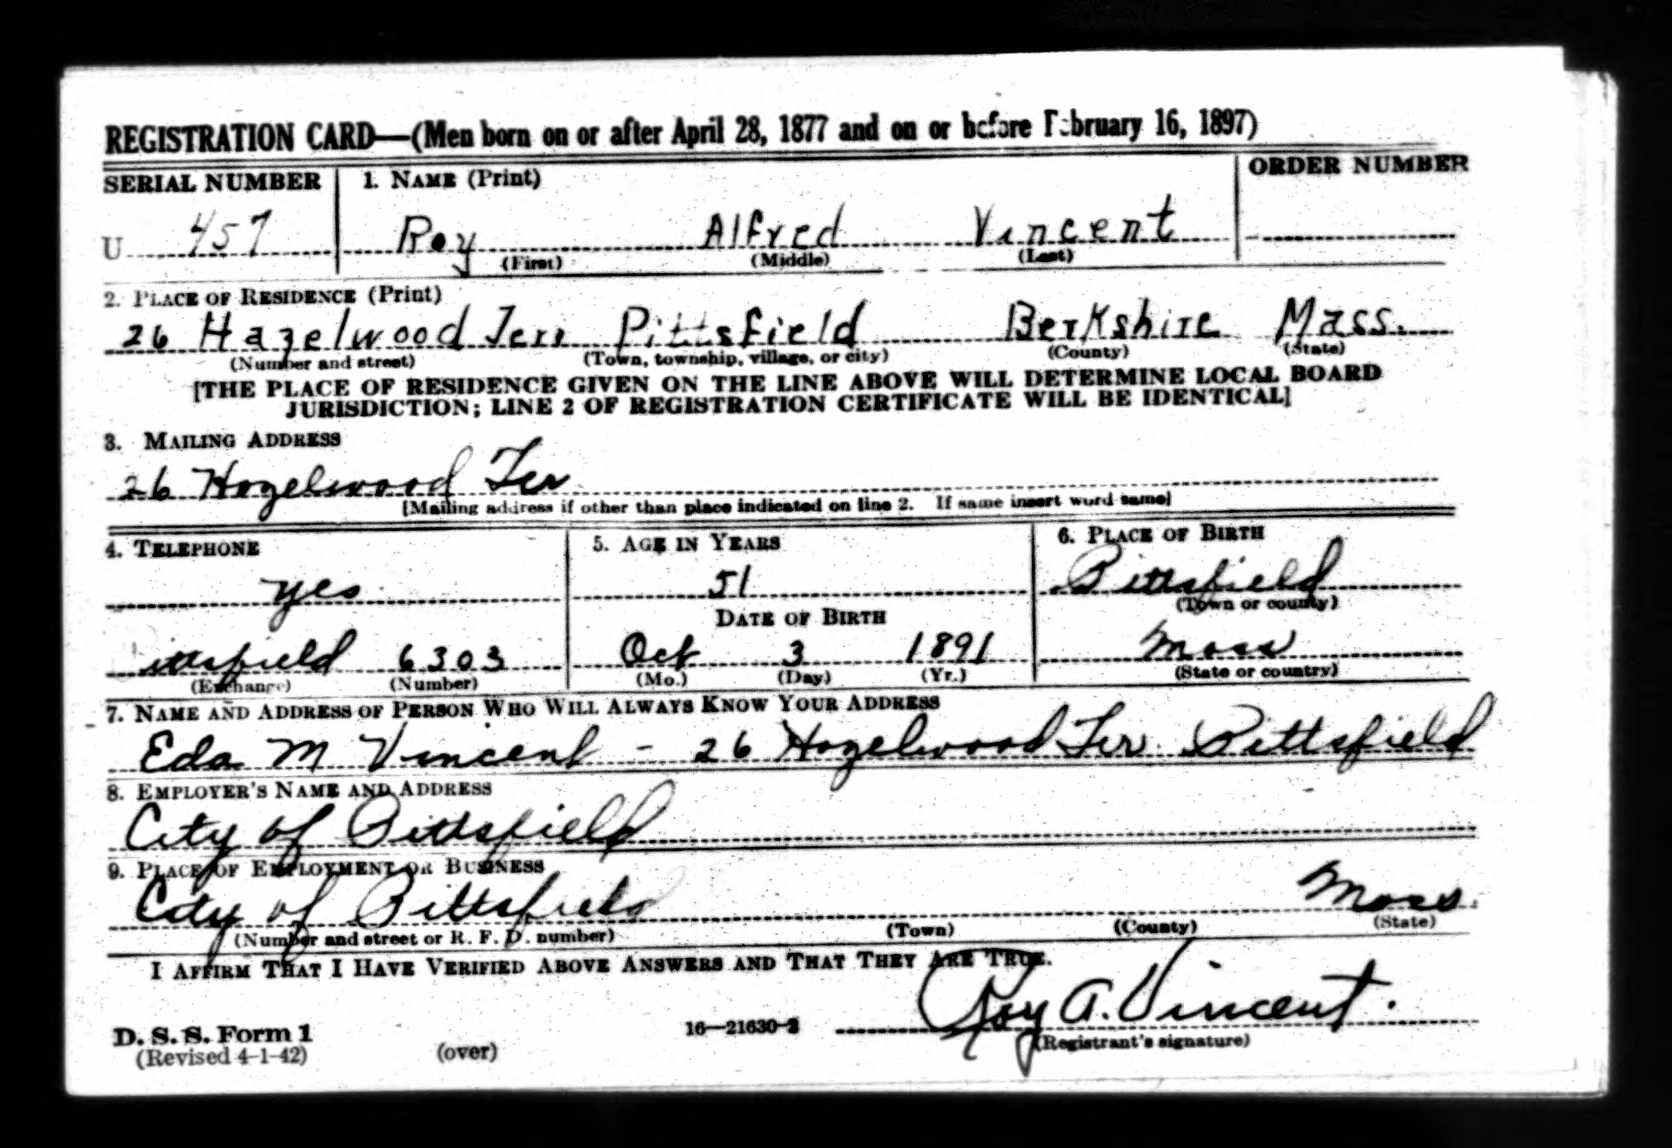 REGISTRATION CARD—(Men born on or after April 28, 1877 and on or before February 16, 1897)
SERIAL NUMBER 1. NAME (Print) ORDER NUMBER
U 457 Roy Alfred Vincent
(First) (Middle) (Last)
2. PLACE OF RESIDENCE (Print)
26 Hazelwood Terr Pittsfield Berkshire Mass.
(Number and street) (Town, township, village, or city) (County) (State)
[THE PLACE OF RESIDENCE GIVEN ON THE LINE ABOVE WILL DETERMINE LOCAL BOARD
JURISDICTION; LINE 2 OF REGISTRATION CERTIFICATE WILL BE IDENTICAL]
3. MAILING ADDRESS
26 Hazelwood Ter
[Mailing address if other than place indicated on line 2. If same insert word same]
4. TELEPHONE 5. AGE IN YEARS 6. PLACE OF BIRTH
yes 51 Pittsfield
(Town or county)
DATE OF BIRTH
Pittsfield 6303 Oct 3 1891 Mass
(Exchange) (Number) (Mo.) (Day) (Yr.) (State or country)
7. NAME AND ADDRESS OF PERSON WHO WILL ALWAYS KNOW YOUR ADDRESS
Eda M Vincent - 26 Hazelwood Ter. Pittsfield
8. EMPLOYER'S NAME AND ADDRESS
City of Pittsfield
9. PLACE OF EMPLOYMENT OR BUSINESS
City of Pittsfield Mass.
(Number and street or R. F. D. number) (Town) (County) (State)
I AFFIRM THAT I HAVE VERIFIED ABOVE ANSWERS AND THAT THEY ARE TRUE.
Roy A. Vincent.
D. S. S. Form 1 16—21630-2
(Revised 4-1-42) (over) (Registrant's signature)